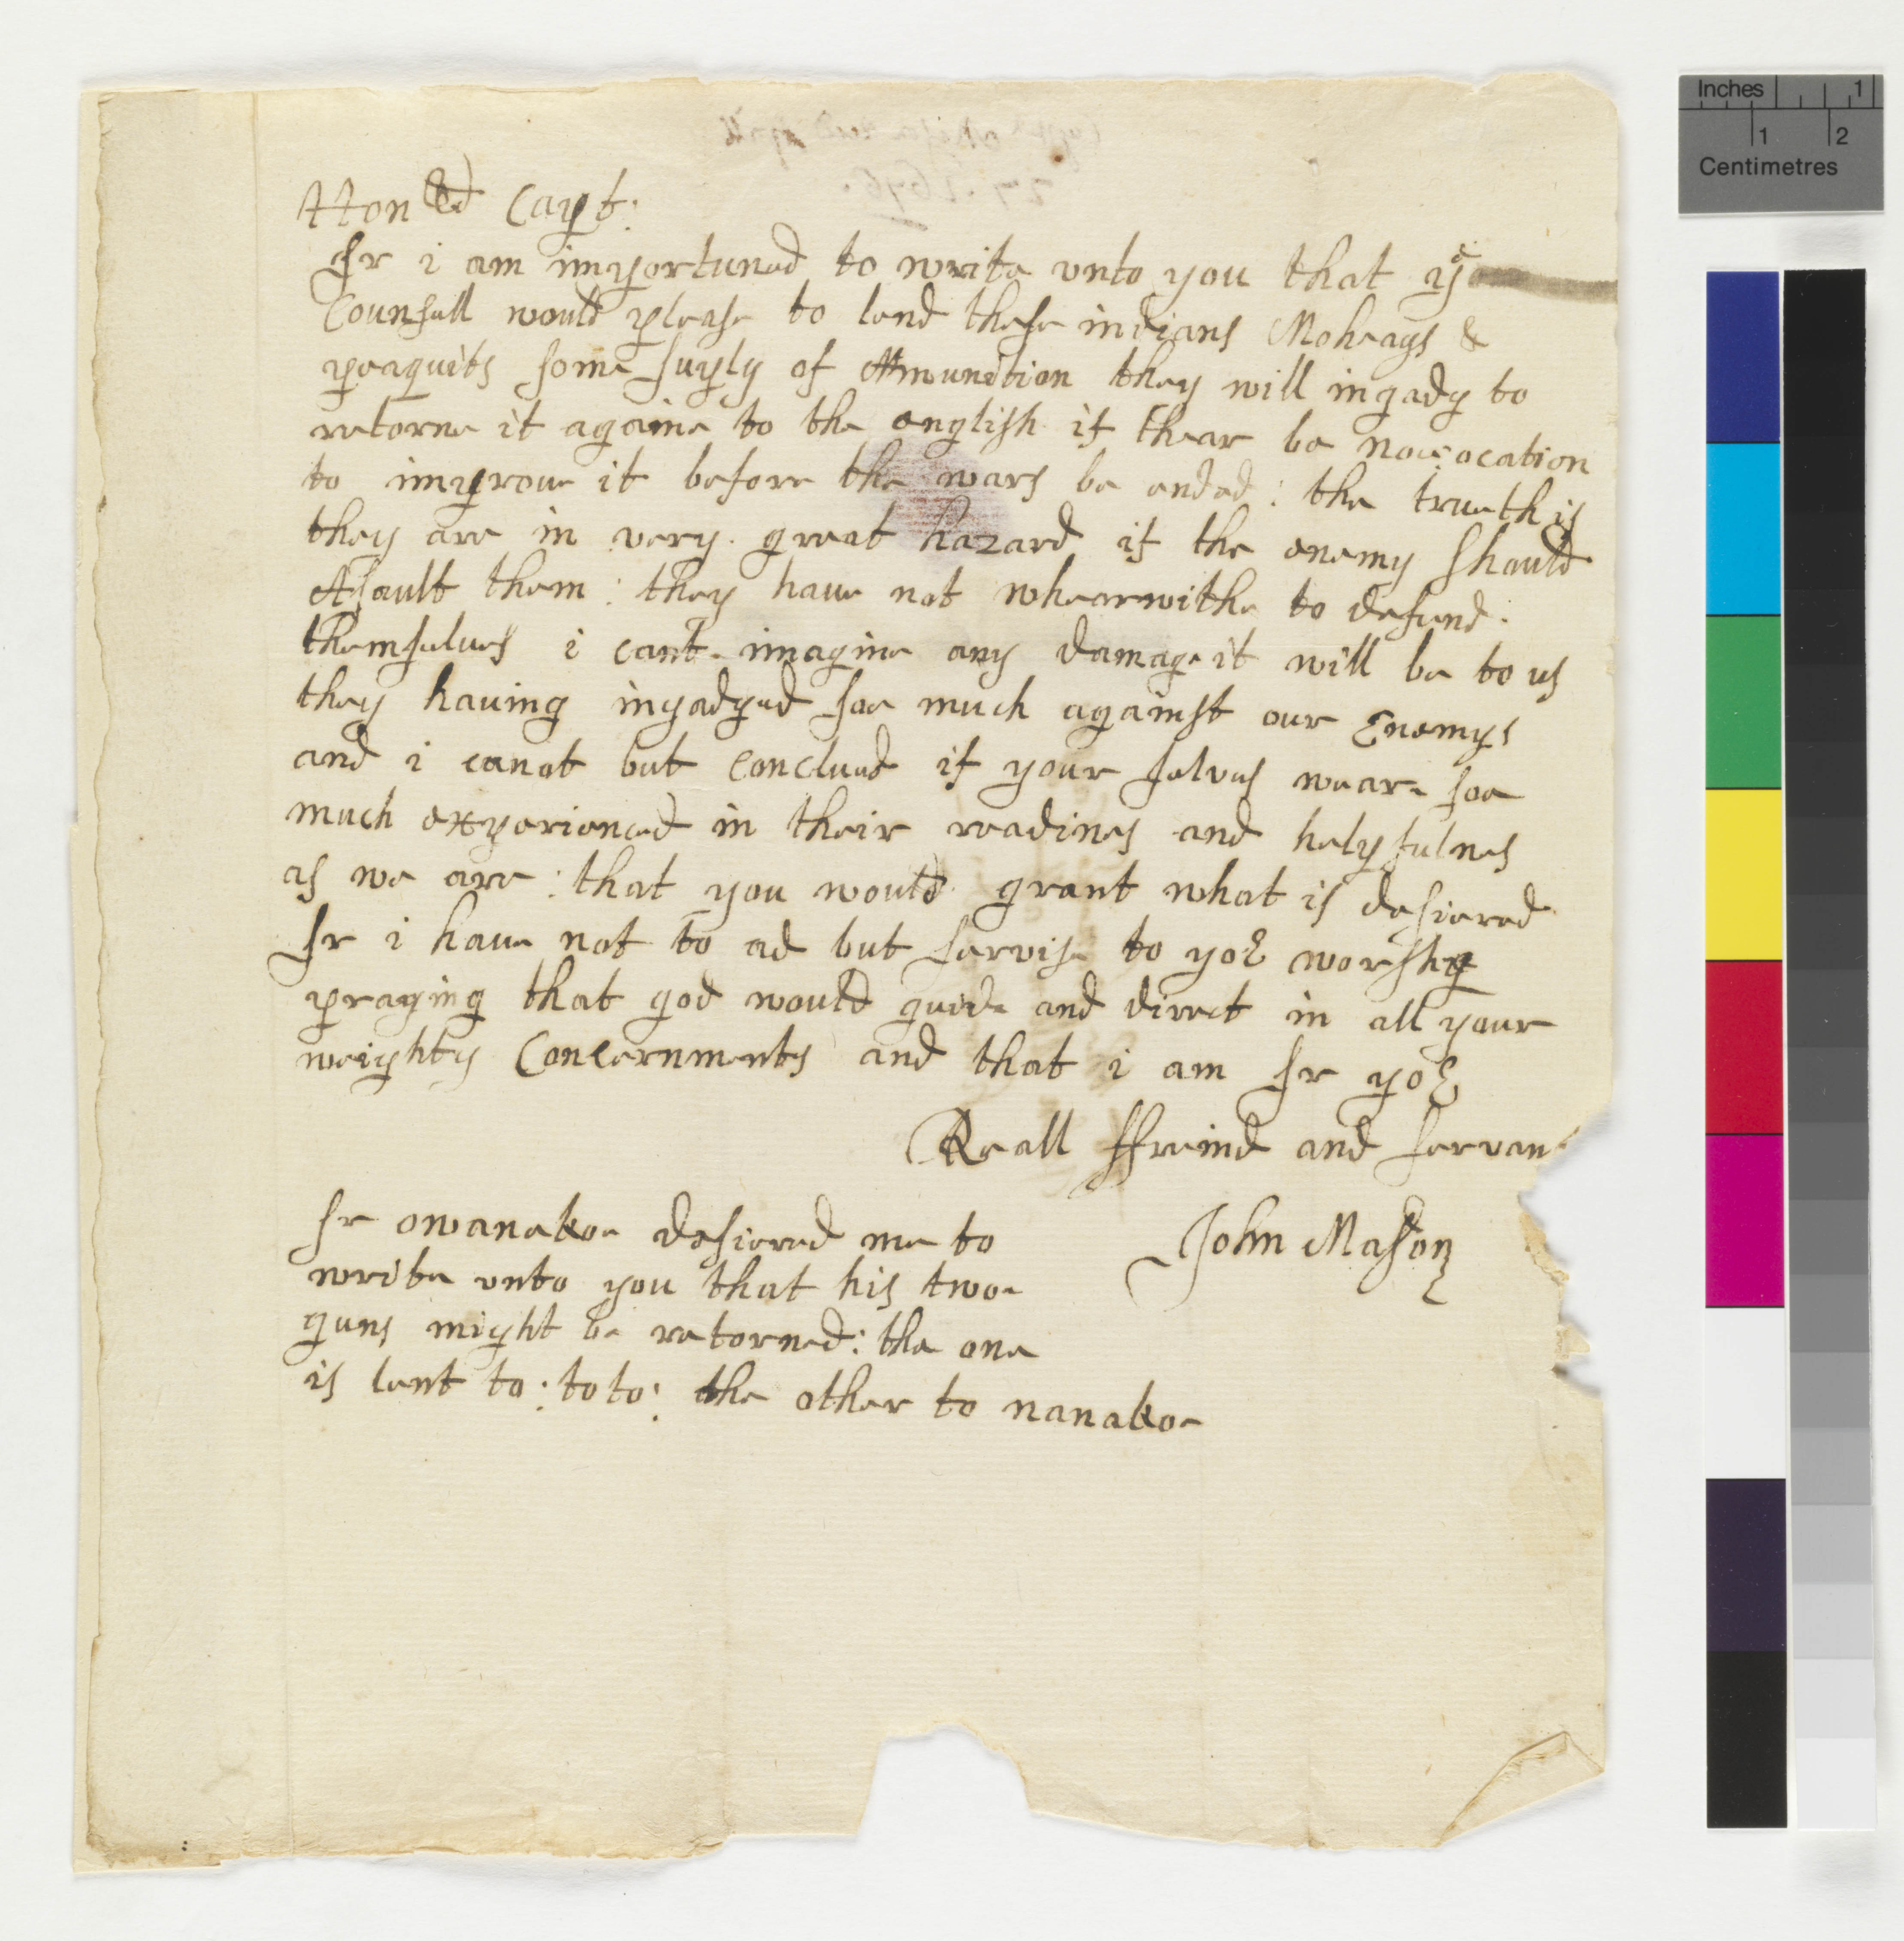 Honred Capt:
Sr i am importuned to write vnto you that ye
Counsell would please to lend these indians Moheags &
peaquits some suply of Ammunition they will ingadg to
retorne it againe to the english if thear be noe ocation
to improue it before the wars be ended : the trueth is
they are in very great hazard if the enemy should
Asault them : they haue not whearwithe to defend
themselues i cant imagine any damage it will be to us
they hauing ingadged soe much against our Enemys
and i canot but conclued if your selves weare soe
much experienced in their readines and helpfulnes
as we are : that you would grant what is desiered
Sr i haue not to ad but servise to yor worshp
praying that god would guide and direct in all your
weighty Concernments and that i am Sr yor
Reall ffreind and servan
John Mason
Sr owanekoe desiered me to
write vnto you that his twoe
guns might be retorned : the one
is lent to : toto : the other to nanakoe
Inches 1
1 2
Centimetres